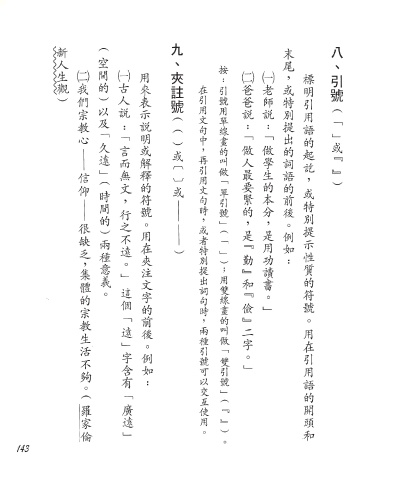 八、引號（「」或『』）
標明引用語的起訖，或特別提示性質的符號。用在引用語的開頭和
末尾，或特別提出的詞語的前後。例如：
㈠老師說：「做學生的本分，是用功讀書。」
㈡爸爸說：「做人最要緊的，是『勤』和『儉』二字。」
按：引號用單線畫的叫做「單引號」（「」）；用雙線畫的叫做「雙引號」（『』）。
在引用文句中，再引用文句時，或者特別提出詞句時，兩種引號可以交互使用。
九、夾註號（（）或〔〕或————）
用來表示說明或解釋的符號。用在夾注文字的前後。例如：
㈠古人說：「言而無文，行之不遠。」這個「遠」字含有「廣遠」
（空間的）以及「久遠」（時間的）兩種意義。
㈡我們宗教心——信仰——很缺乏，集體的宗教生活不夠。（羅家倫
新人生觀）
143